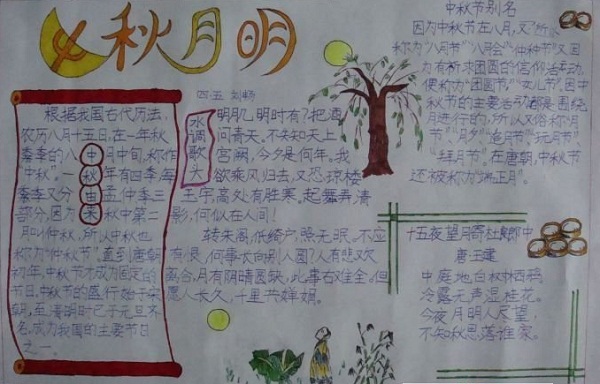 中秋月明
四五 刘畅
根据我国古代历法,
农历八月十五日,在一年秋
季的八月中旬,称作
中秋。一年有四季,每
季又分孟、仲、季三
部分,因为秋中第二
月叫仲秋,所以中秋也
称为“仲秋节”直到唐朝
初年,中秋节才成为固定的
节日。中秋节的盛行始于宋
朝,至清明时已与元旦齐
名,成为我国的主要节日
之一。
中秋由来
水调歌头
明月几时有?把酒
问青天。不知天上
宫阙,今夕是何年。我
欲乘风归去,又恐琼楼
玉宇,高处不胜寒,起舞弄清
影,何似在人间!
转朱阁,低绮户,照无眠。不应
有恨,何事长向别人圆?人有悲欢
离合,月有阴晴圆缺,此事古难全。但
愿人长久,千里共婵娟。
中秋节别名
因为中秋节在八月,又
称为“八月节”“八月会”“仲秋节”又因
为有祈求团圆的信仰活动,
便称为“团圆节”“女儿节”。因中
秋节的主要活动都是围绕
月进行的,所以又俗称“月
节”“月夕”“追月节”“玩月节”
“拜月节”在唐朝,中秋节
还被称为“端正月”。
十五夜望月寄杜郎中
唐:王建
中庭地白树栖鸦,
冷露无声湿桂花。
今夜月明人尽望,
不知秋思落谁家。